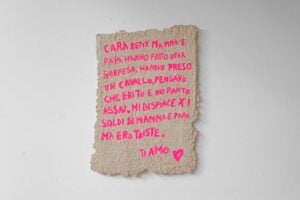 CARA BETTY MAMMA E
PAPA HANNO FATTO UNA
SORPESA, HANNO PRESO
UN CAVALLO, PENSAVO
CHE ERI TU E HO PIANTO
ASSAI, MI DISPIACE X I
SOLDI DI MAMMA E PAPA
MA ERO TRISTE.
TI AMO